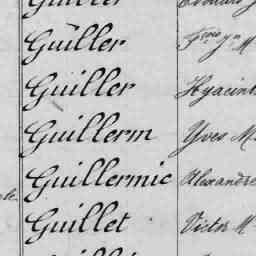 Guiller
Guiller Hyacint
Guillerm Yves M
Guillermic Alexandre
Guillet Victor M